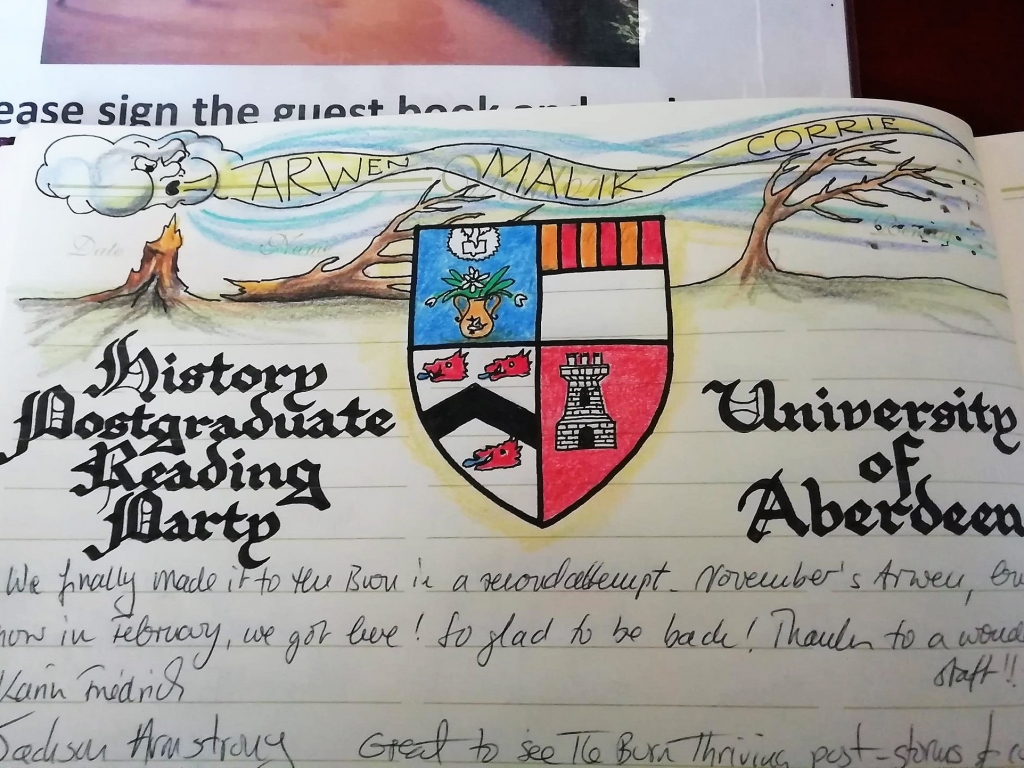 ease sign the guest book and
ARWEN MALIK CORRIE
Date Name
History
Postgraduate
Reading
Party
University
of
Aberdeen
We finally made it to the Burn in a second attempt. November's Arwen, but
now in February, we got here! So glad to be back! Thanks to a
staff!!
Karin Friedrich
Jackson Armstrong Great to see The Burn Thriving post-storms &